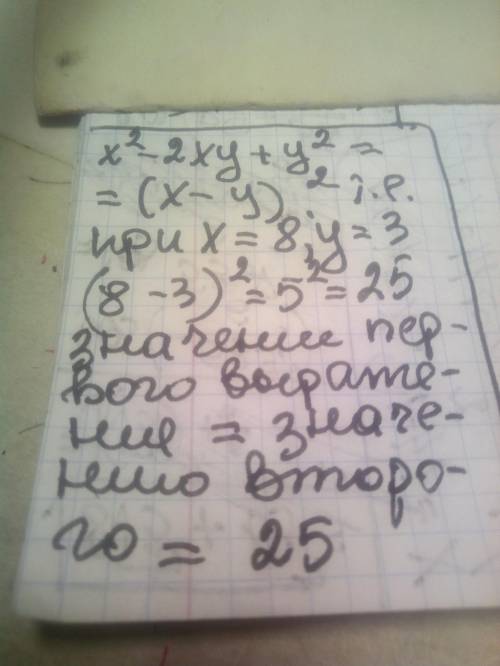 x² - 2xy + y² =
= (x - y)² т.е.
при x = 8, y = 3
(8 - 3)² = 5² = 25
значении пер-
вого выраже-
ния = значе-
нию второ-
го = 25